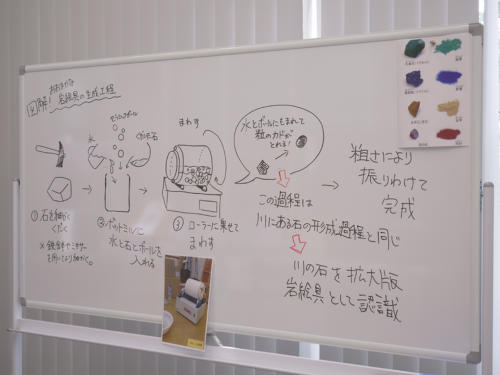 おおまかな
図解! 岩絵具の生成工程
セラミックボール
水
くだいた石
まわす
水とボールにもまれて
粒のカドが
とれる!
① 石を細かく
くだく
② ポットミルに
水と石とボールを
入れる
③ ローラーに乗せて
まわす
この過程は
川にある石の形成過程と同じ
川の石を拡大版
岩絵具として認識
粗さにより
振りわけて
完成